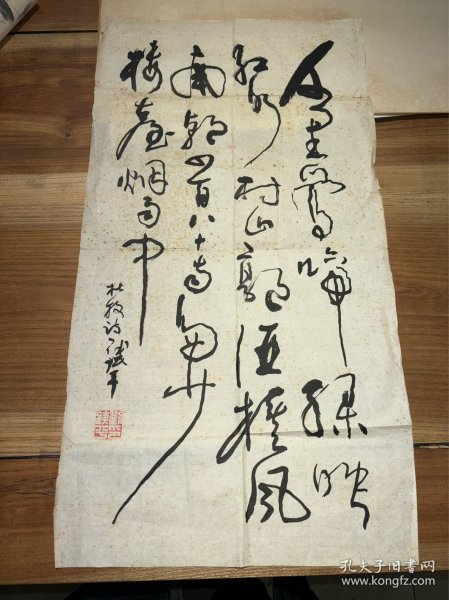 千里鶯啼绿映
红水村山郭酒旗风
南朝四百八十寺多少
楼臺烟雨中
杜牧诗
孔夫子旧书网
www.kongfz.com